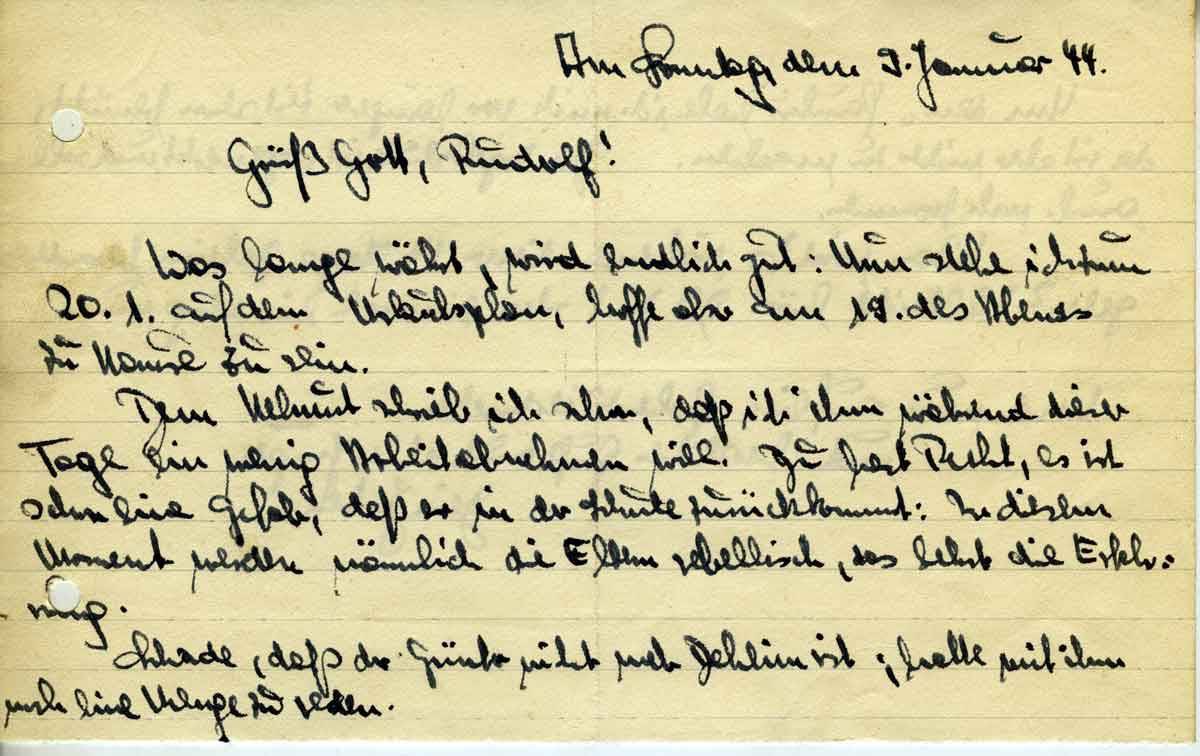 Am Sonntag, dem 9. Januar 44.
Grüß Gott, Rudolf!
Was lange währt, wird endlich gut: Nun stehe ich zum
20. 1. auf dem Urlaubsplan, hoffe aber am 19. des Abends
zu Hause zu sein.
Dem Helmut schrieb ich schon, daß ich ihm während dieser
Tage ein wenig Arbeit abnehmen will. Du hast Recht, es ist
schon eine Gefahr, daß er in der Schule zurückkommt: In diesem
Moment werden nämlich die Eltern rebellisch, das lehrt die Erfah-
rung.
Schade, daß der Günter nicht mehr daheim ist; hatte mit ihm
noch eine Menge zu reden.